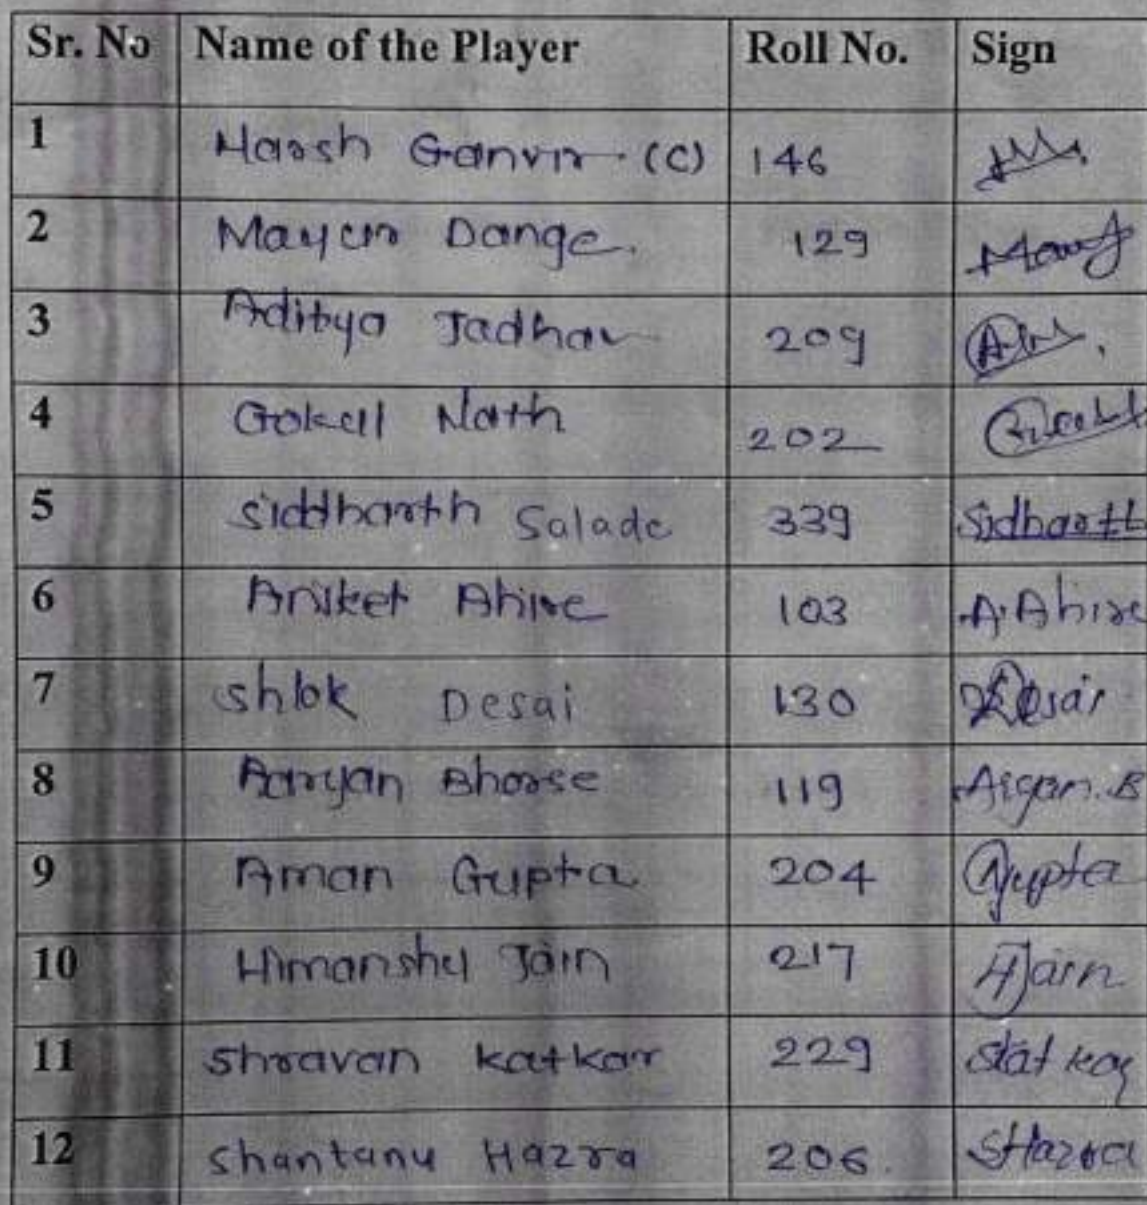 Sr. No Name of the Player Roll No. Sign
1 Harsh Ganvir (C) 146
2 Mayur Dange. 129
3 Aditya Jadhav 209
4 Gokul Nath 202
5 Siddharth Salade 339 Sidharth
6 Aniket Ahire 103 A.Ahire
7 Shlok Desai 130 Desai
8 Aaryan Bhorse 119 Aryan.B
9 Aman Gupta 204 Gupta
10 Himanshu Jain 217 HJain
11 Shravan Katkar 229
12 Shantanu Hazra 206. SHazra